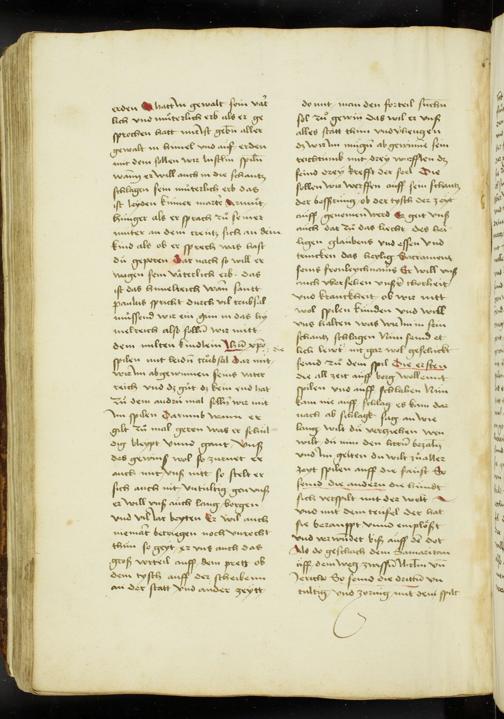 erden Er hatt in gewalt sein vät
lich und müterlich erb als er ge
sprochen hatt mir ist geben aller
gewalt in himel und auff erden
mit dem sollen wir lustlich spilen
wann er will auch in die schantz
schlagen sein müterlich erb das
ist leyden kumer marter armut
hunger als er sprach zu seiner
muter an dem creütz sich an dem
kind als ob er sprech was hast
du geporen Dar nach so will er
wagen sein väterlich erb das
ist das himelreich wan sannt
paulus spricht durch vil trübsal
müssend wir ein gan in das hy
melreich also sollen wir mitt
dem milten kindlein
spilen mit leiden trübsal Dar mit
wir im abgewinnen seins vater
reich und
zu dem andern mal sollen wir mit
im spilen Darumb wann er
gilt zu mal geren was er schul
dig bleypt unnd gant unß
das gewunß wol so zürnet er
auch mit unß nitt so stelt er
sich auch nit untultig gen unß
er will unß auch lang borgen
und vil tat beyten Er wil auch
nemant betriegen noch unrecht
thün so geyt er unß auch das
groß urteil auff dem prett ob
dem tysch auff der scheiben
an der statt und ander zeytt
do mit man den forteil suchen
sol zu gewin das wil er unß
alles statt thün und verhengen
das wir im mügen ab gewinne sein
reichtumb mit drey würfflen das
seind drey krefft der sel Die
sollen wir werffen auff sein schantz
der hoffnung ob der tysch der zeyt
auff genomen werd Er geit unß
auch dar zu das liecht des hei
ligen glaubens und essen und
trincken das heylig Sacrament
seins fronleychnams Er will unß
auch übersehen unser thorheit
und kranckheit ob wir nitt
wol spilen künden und will
uns halten was wir im in sein
schantz schlagen Nun seind et
lich lewt nit gar wol geschickt
seind zu dem spil Die ersten
die all zeit auff borg wollend
spilen und auff schlahen Nun
kan nie auff schlag es kom dar
nach ab schlag sag an wie
lang wilt du verziehen wen
wilt du nun den herren bezalen
und im gelten du wilt zu aller
zeyt spilen auff die faust So
seind die andern die hand
sich verspilt mit der welt
und mit dem teufel der hat
sie beraupt unnd emplößt
und verwundet biß auff den tod
Als do geschach dem Samaritan
auff dem weg zwischen
Jericho So seind die dritten un
tultig und zornig mit dem spil